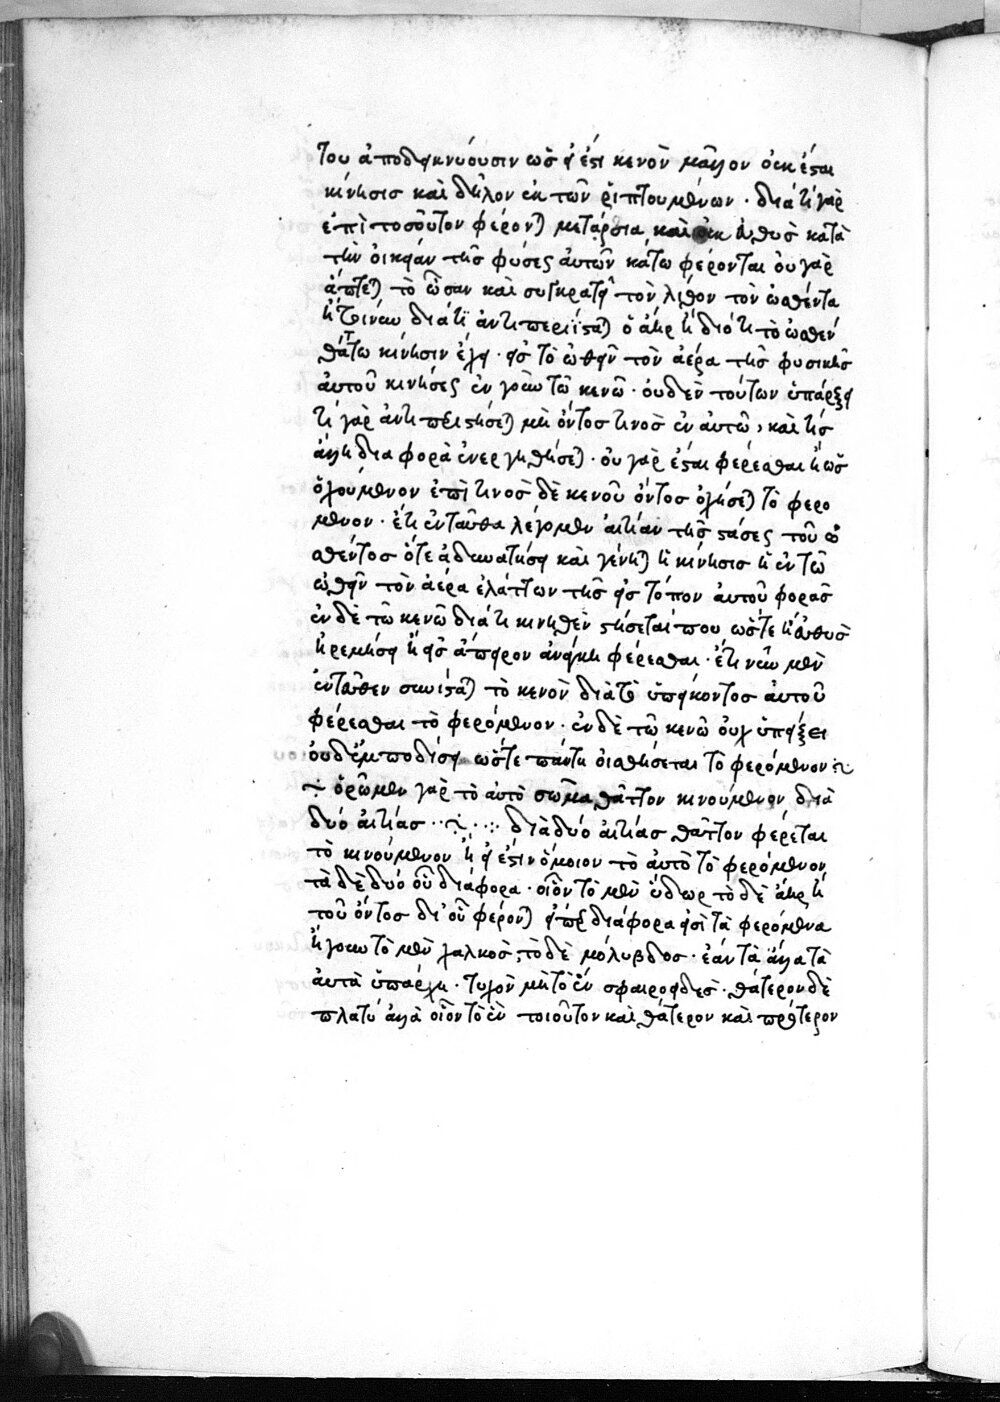 του ἀποδεικνύουσιν ὡς εἰ ἔστι κενὸν μᾶλλον οὐκ ἔσται
κίνησις καὶ δῆλον ἐκ τῶν ῥιπτουμένων · διὰ τί γὰρ
ἐπὶ τοσοῦτον φέρονται μετάρσια καὶ οὐκ εὐθὺς κατὰ
τὴν οἰκείαν τῆς φύσεως αὐτῶν κάτω φέρονται οὐ γὰρ
ἅπτεται τὸ ὦσαν καὶ συγκρατεῖ τὸν λίθον τὸν ὠσθέντα
ἢ διὰ τί ἀντιπεριίσταται ὁ ἀὴρ ἢ διότι τὸ ὠσθὲν
θάττω κίνησιν ἔχει · εἰς τὸ ὠθεῖν τὸν ἀέρα τῆς φυσικῆς
αὐτοῦ κινήσεως ἐν γοῦν τῷ κενῷ · οὐδὲν τούτων ὑπάρξει
τί γὰρ ἀντιπεριστήσεται μὴ ὄντος τινὸς ἐν αὐτῷ, καὶ τίς
ἄλλη διαφορὰ ἐνεργηθήσεται · οὐ γὰρ ἔσται φέρεσθαι ἢ ὡς
ὀχούμενον ἐπί τινος δὲ κενοῦ ὄντος ὀχήσεται τὸ φερό
μενον · ἔτι ἐνταῦθα λέγομεν αἰτίαν τῆς στάσεως τοῦ ὠ
σθέντος ὅτε ἀδυνατήσει καὶ γένηται ἡ κίνησις ἡ ἐν τῷ
ὠθεῖν τὸν ἀέρα ἐλάττων τῆς εἰς τόπον αὐτοῦ φορᾶς
ἐν δὲ τῷ κενῷ διὰ τί κινηθὲν στήσεταί που ὥστε ἢ εὐθὺς
ἠρεμήσει ἢ εἰς ἄπειρον ἀνάγκη φέρεσθαι · ἔτι νῦν μὲν
ἐνταῦθεν συνίσταται τὸ κενὸν διὰ τὸ ὑπείκοντος αὐτοῦ
φέρεσθαι τὸ φερόμενον · ἐν δὲ τῷ κενῷ οὐχ ὑπείξει
οὐδ' ἐμποδίσει ὥστε πάντη οἰσθήσεται τὸ φερόμενον :~
÷ ὁρῶμεν γὰρ τὸ αὐτὸ σῶμα θᾶττον κινούμενον διὰ
δύο αἰτίας ··~·· διὰ δύο αἰτίας θᾶττον φέρεται
τὸ κινούμενον ἢ εἰ ἔστιν ὅμοιον τὸ αὐτὸ τὸ φερόμενον
τὰ δὲ δύο οὗ διάφορα · οἷον τὸ μὲν ὕδωρ τὸ δὲ ἀὴρ ἢ
τοῦ ὄντος δι' οὗ φέρονται εἴπερ διάφορα εἰσὶ τὰ φερόμενα
ἢ γοῦν τὸ μὲν χαλκὸς, τὸ δὲ μόλυβδος · ἐὰν τὰ ἄλλα τὰ
αὐτὰ ὑπάρχῃ · τυχὸν μὴ τὸ ἓν σφαιροειδὲς · θάτερον δὲ
πλατύ ἀλλὰ οἷον τὸ ἓν τοιοῦτον καὶ θάτερον καὶ πρότερον